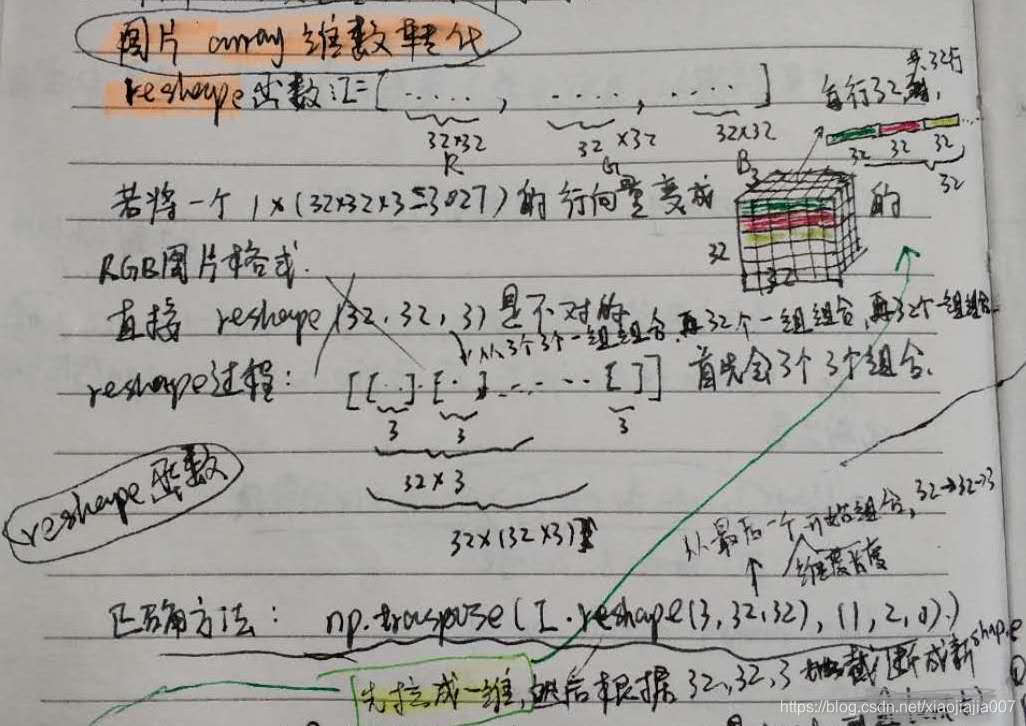 图片 array 维数转化
reshape函数: I=[ ..... , ..... , ..... ]
共32行
每行32
32×32 32×32 32×32
R G B
32 32 32
32
若将一个 1×(32×32×3=3027)的行向量变成 的
32
32
RGB图片格式.
直接 reshape(32, 32, 3) 是不对的
从3个3个一组组合,再32个一组组合,再32个一组组合
reshape过程: [[..].[.].....[ ]] 首先会3个3个组合.
3 3 3
32×3
reshape函数
32×(32×3)
从最后一个开始组合, 32→32→3
维度长度
正确方法: np.transpose(I.reshape(3,32,32), (1,2,0))
先拉成一维,然后根据 32,32,3 截断成新shape
https://blog.csdn.net/xiaojiajia007